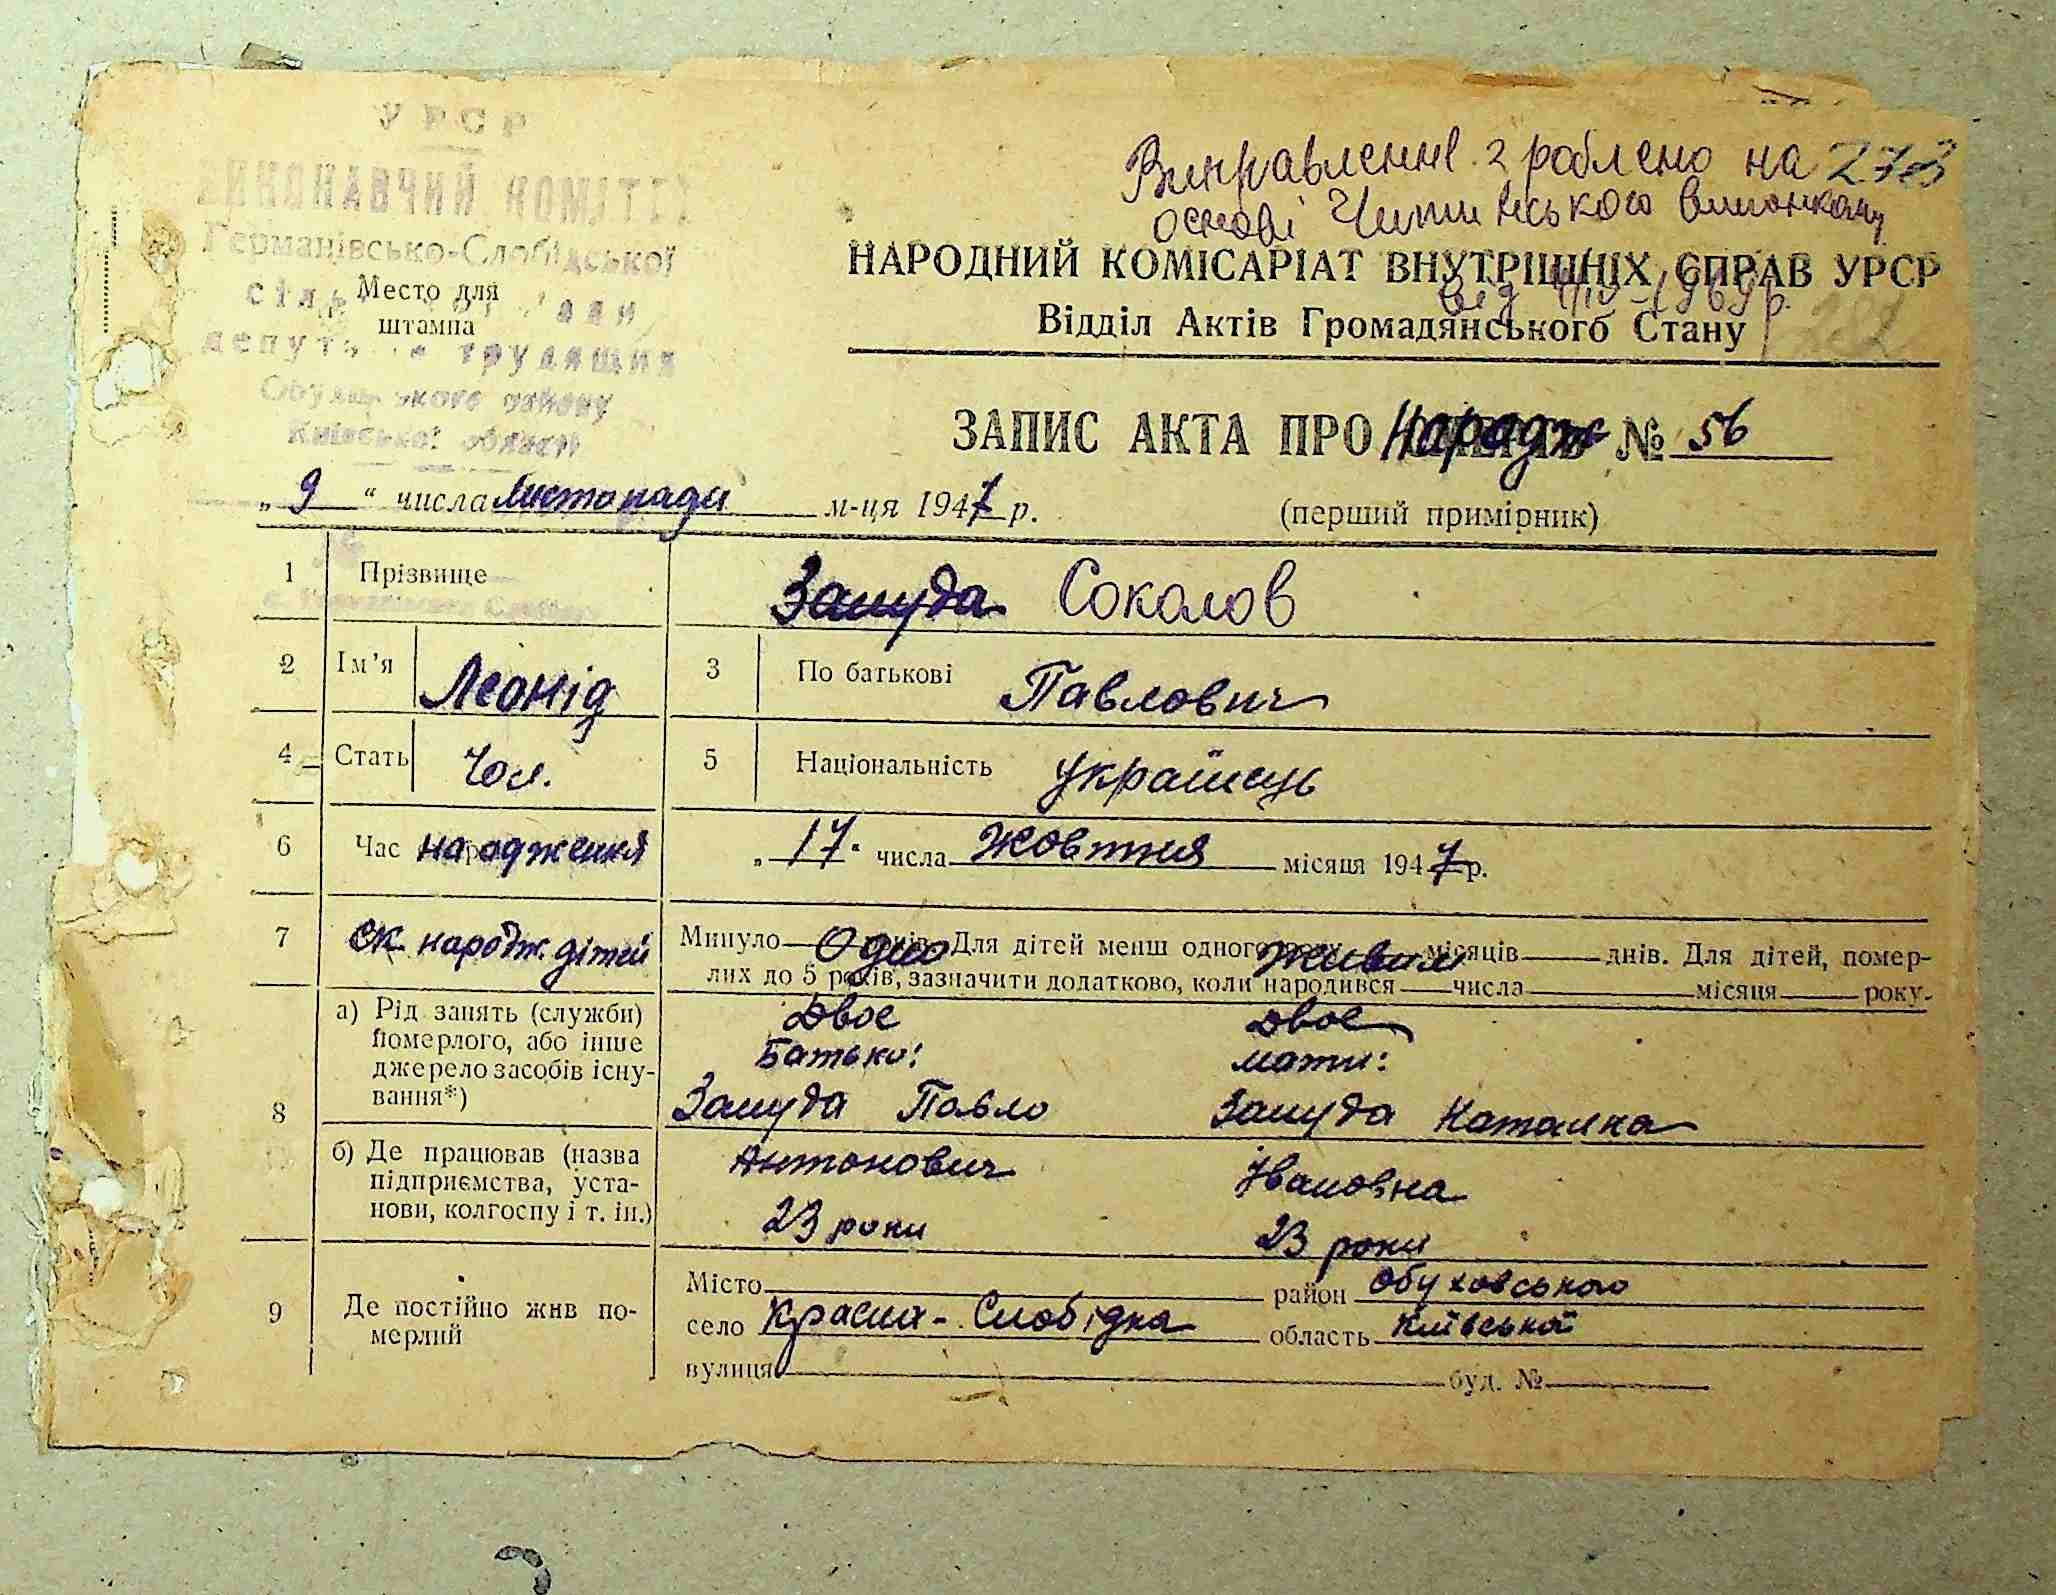 УРСР
ВИКОНАВЧИЙ КОМІТЕТ
Германівсько-Слобідської
Место для
штампа
депут трудящих
Київської області
Виправлення зроблено на 273
основі Читинського
НАРОДНИЙ КОМІСАРІАТ ВНУТРІШНІХ СПРАВ УРСР
від
Відділ Актів Громадянського Стану 282
ЗАПИС АКТА ПРО Народж № 56
„ 9 “ числа Листопада м-ця 1947 р.
(перший примірник)
1 Прізвище Зашуда Соколов
2 Ім'я Леонід 3 По батькові Павлович
4 Стать Чол. 5 Національність українець
6 Час народження „ 17 “ числа Жовтня місяця 1947 р.
7 ск. народж. дітей Минуло Одно Для дітей менш одного Живим місяців днів. Для дітей, помер-
лих до 5 років, зазначити додатково, коли народився числа місяця року.
8
а) Рід занять (служби)
померлого, або інше
джерело засобів існу-
вання*)
Двоє Двоє
Батько: мати:
Зашуда Павло Зашуда Наталка
б) Де працював (назва
підприємства, уста-
нови, колгоспу і т. ін.)
Антонович Івановна
23 роки 23 роки
9 Де постійно жив по-
мерлий
Місто район Обуховського
село Красна-Слобідка область Київської
вулиця буд. №